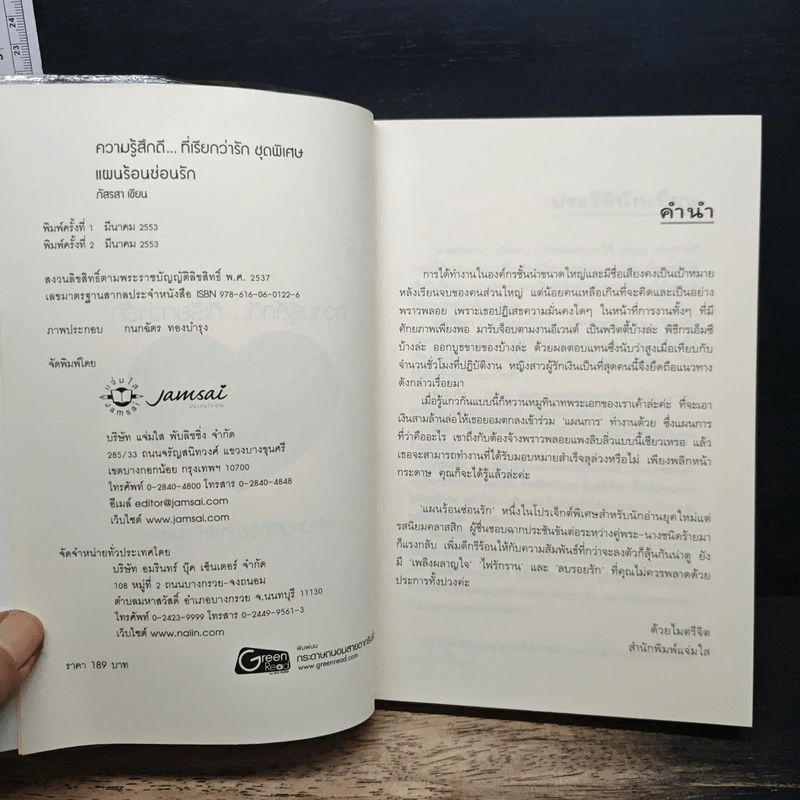 ความรู้สึกดี... ที่เรียกว่ารัก ชุดพิเศษ
แผนร้อนซ่อนรัก
ภัสรสา เขียน
พิมพ์ครั้งที่ 1 มีนาคม 2553
พิมพ์ครั้งที่ 2 มีนาคม 2553
สงวนลิขสิทธิ์ตามพระราชบัญญัติลิขสิทธิ์ พ.ศ. 2537
เลขมาตรฐานสากลประจำหนังสือ ISBN 978-616-06-0122-6
ภาพประกอบ กนกฉัตร ทองบำรุง
จัดพิมพ์โดย
แจ่มใส
Jamsai
Jamsai
บริษัท แจ่มใส พับลิชชิ่ง จำกัด
285/33 ถนนจรัญสนิทวงศ์ แขวงบางขุนศรี
เขตบางกอกน้อย กรุงเทพฯ 10700
โทรศัพท์ 0-2840-4800 โทรสาร 0-2840-4848
อีเมล์ editor@jamsai.com
เว็บไซต์ www.jamsai.com
จัดจำหน่ายทั่วประเทศโดย
บริษัท อมรินทร์ บุ๊ค เซ็นเตอร์ จำกัด
108 หมู่ที่ 2 ถนนบางกรวย-จงถนอม
ตำบลมหาสวัสดิ์ อำเภอบางกรวย จ.นนทบุรี 11130
โทรศัพท์ 0-2423-9999 โทรสาร 0-2449-9561-3
เว็บไซต์ www.naiin.com
ราคา 189 บาท
Green Read
พิมพ์บน
กระดาษถนอมสายตากรีนรี้ด
www.greenread.com
คำนำ
การได้ทำงานในองค์กรชั้นนำขนาดใหญ่และมีชื่อเสียงคงเป็นเป้าหมาย
หลังเรียนจบของคนส่วนใหญ่ แต่น้อยคนเหลือเกินที่จะคิดและเป็นอย่าง
พราวพลอย เพราะเธอปฏิเสธความมั่นคงใดๆ ในหน้าที่การงานทั้งๆ ที่มี
ศักยภาพเพียงพอ มารับจ็อบตามงานอีเวนต์ เป็นพริตตี้บ้างล่ะ พิธีกรเอ็มซี
บ้างล่ะ ออกบูธขายของบ้างล่ะ ด้วยผลตอบแทนซึ่งนับว่าสูงเมื่อเทียบกับ
จำนวนชั่วโมงที่ปฏิบัติงาน หญิงสาวผู้รักเงินเป็นที่สุดคนนี้จึงยึดถือแนวทาง
ดังกล่าวเรื่อยมา
เมื่อรู้แกวกันแบบนี้ก็หวานหมูทินาทพระเอกของเราเค้าล่ะค่ะ ที่จะเอา
เงินสามล้านล่อให้เธอยอมตกลงเข้าร่วม 'แผนการ' ทำงานด้วย ซึ่งแผนการ
ที่ว่าคืออะไร เขาถึงกับต้องจ้างพราวพลอยแพงลิบลิ่วแบบนี้เชียวเหรอ แล้ว
เธอจะสามารถทำงานที่ได้รับมอบหมายสำเร็จลุล่วงหรือไม่ เพียงพลิกหน้า
กระดาษ คุณก็จะได้รู้แล้วล่ะค่ะ
'แผนร้อนซ่อนรัก' หนึ่งในโปรเจ็กต์พิเศษสำหรับนักอ่านยุคใหม่แต่
รสนิยมคลาสสิก ผู้ชื่นชอบฉากประชันขันต่อระหว่างคู่พระ-นางชนิดร้ายมา
ก็แรงกลับ เพิ่มดีกรีร้อนให้กับความสัมพันธ์ที่กว่าจะลงตัวก็ลุ้นกันน่าดู ยัง
มี 'เพลิงผลาญใจ' 'ไฟรักราน' และ 'ลบรอยรัก' ที่คุณไม่ควรพลาดด้วย
ประการทั้งปวงค่ะ
ด้วยไมตรีจิต
สำนักพิมพ์แจ่มใส
23
24